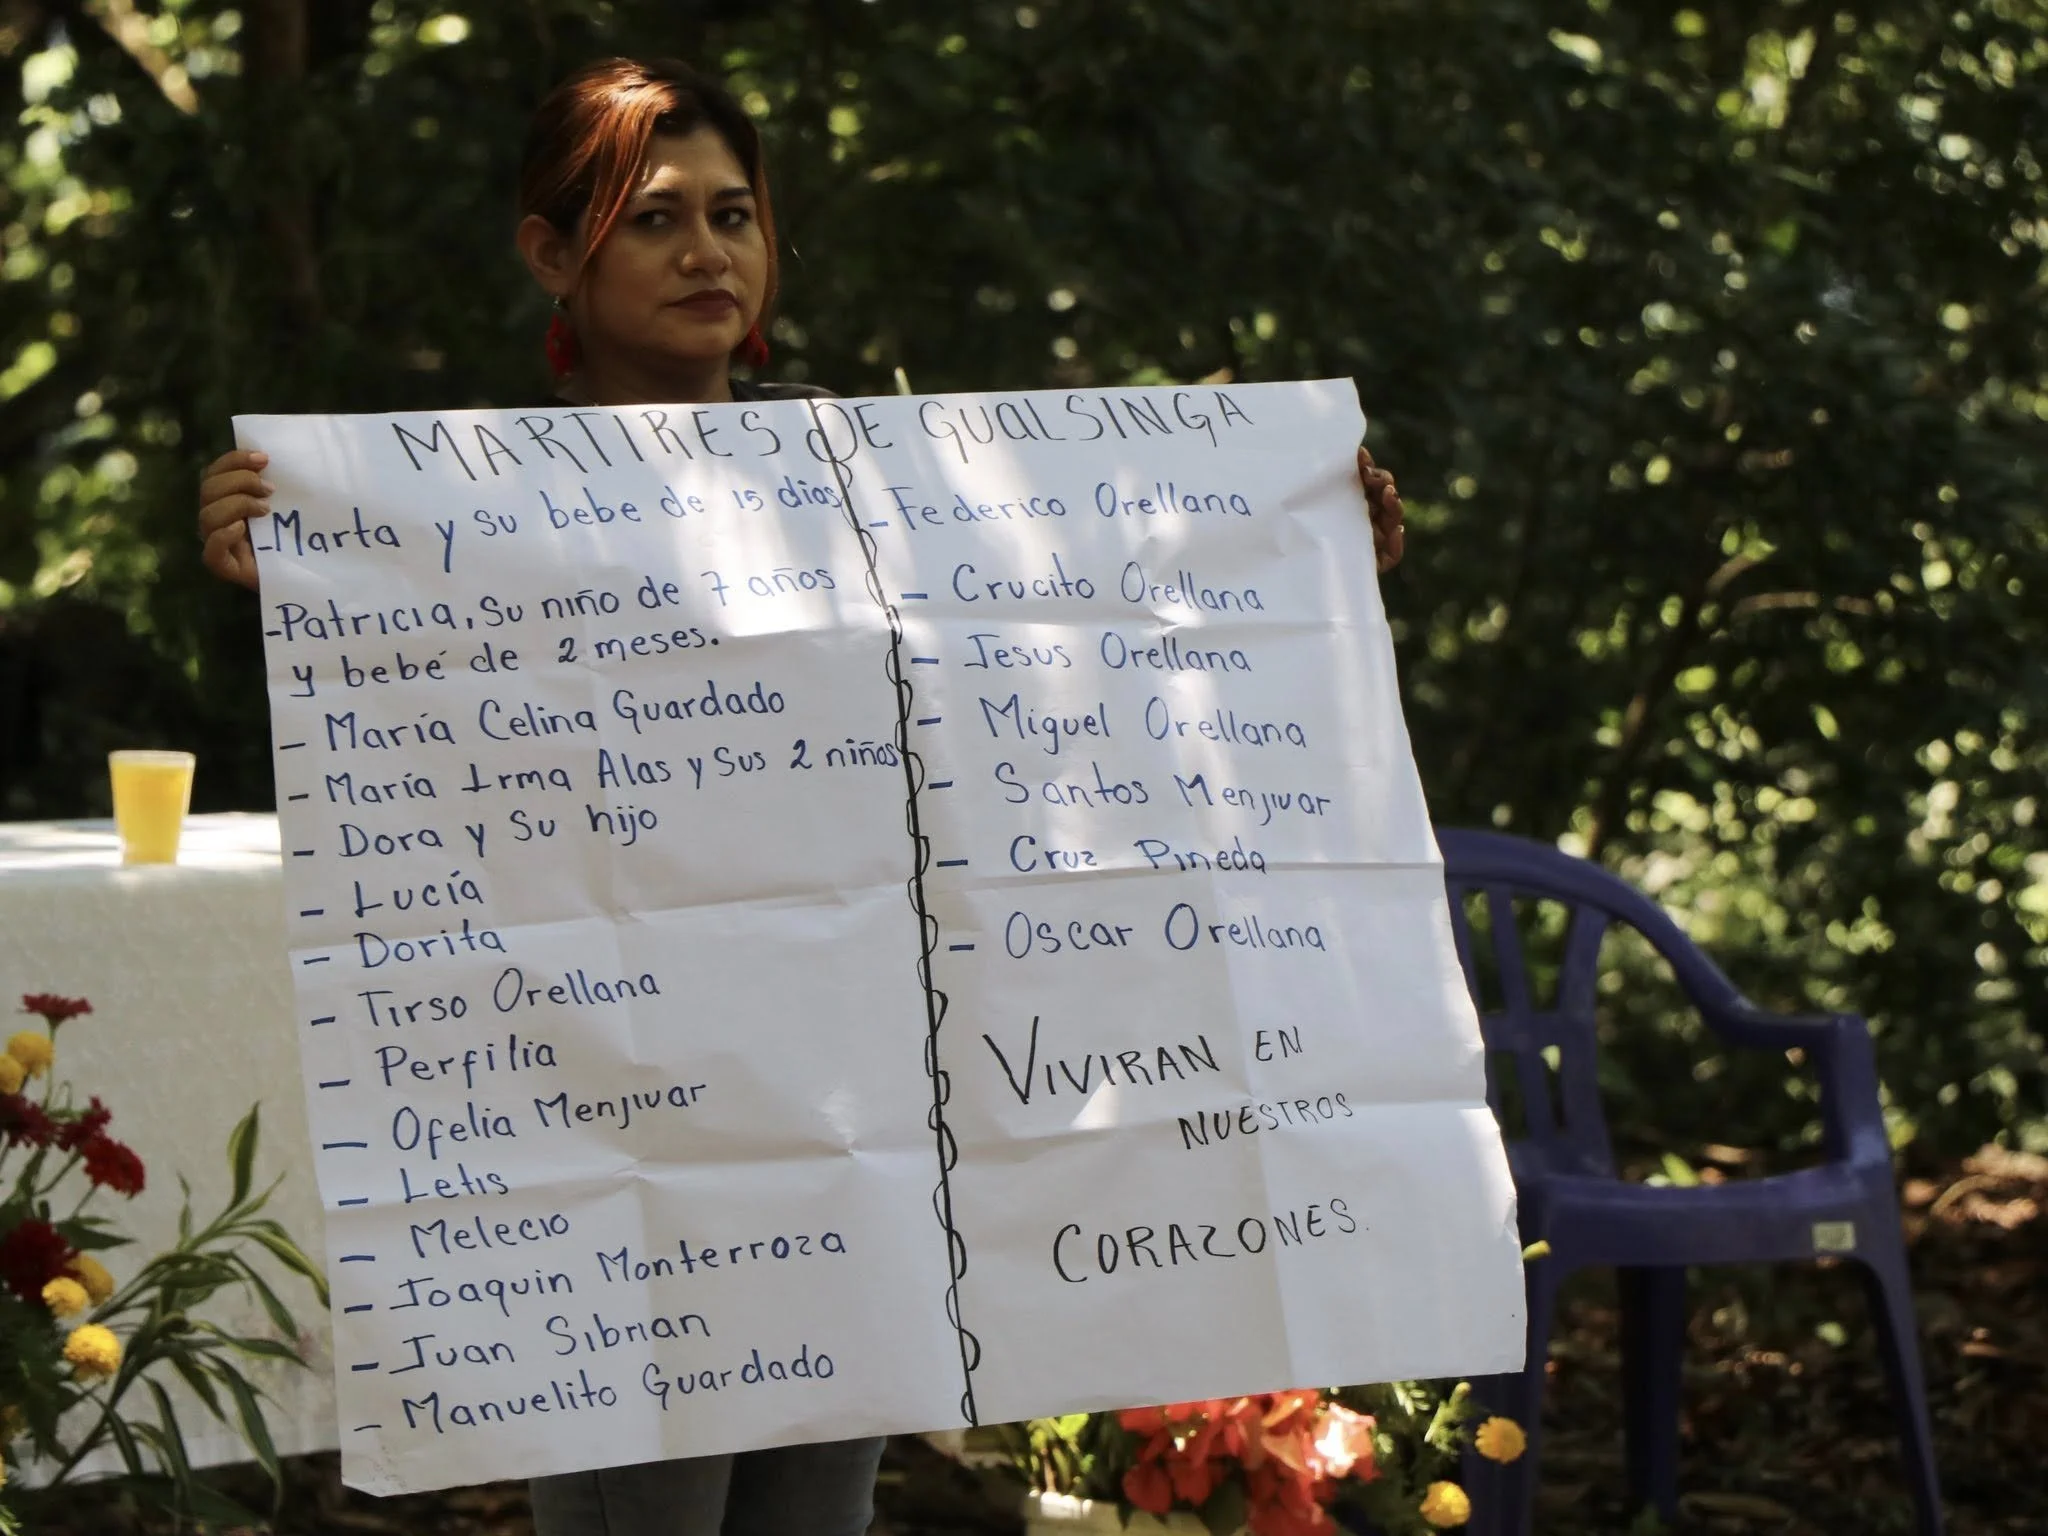 MARTIRES DE GUALSINGA
-Marta y su bebe de 15 dias
-Patricia, Su niño de 7 años
y bebé de 2 meses.
- María Celina Guardado
- María Irma Alas y Sus 2 niños
- Dora y Su hijo
- Lucía
- Dorita
- Tirso Orellana
- Perfilia
- Ofelia Menjivar
- Letis
- Melecio
- Joaquin Monterroza
- Juan Sibrian
- Manuelito Guardado
- Federico Orellana
- Crucito Orellana
- Jesus Orellana
- Miguel Orellana
- Santos Menjivar
- Cruz Pineda
- Oscar Orellana
VIVIRAN EN
NUESTROS
CORAZONES.